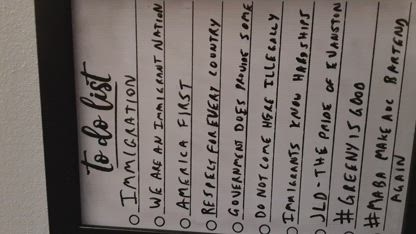 to do list
IMMIGRATION
WE ARE AN IMMIGRANT NATION
AMERICA FIRST
RESPECT FOR EVERY COUNTRY
GOVERNMENT DOES PROVIDE SOME
DO NOT COME HERE ILLEGALLY
IMMIGRANTS KNOW HARDSHIPS
JLD-THE PRIDE OF EVANSTON
#GREENY IS GOOD
#MABA MAKE AOC BARTEND
AGAIN